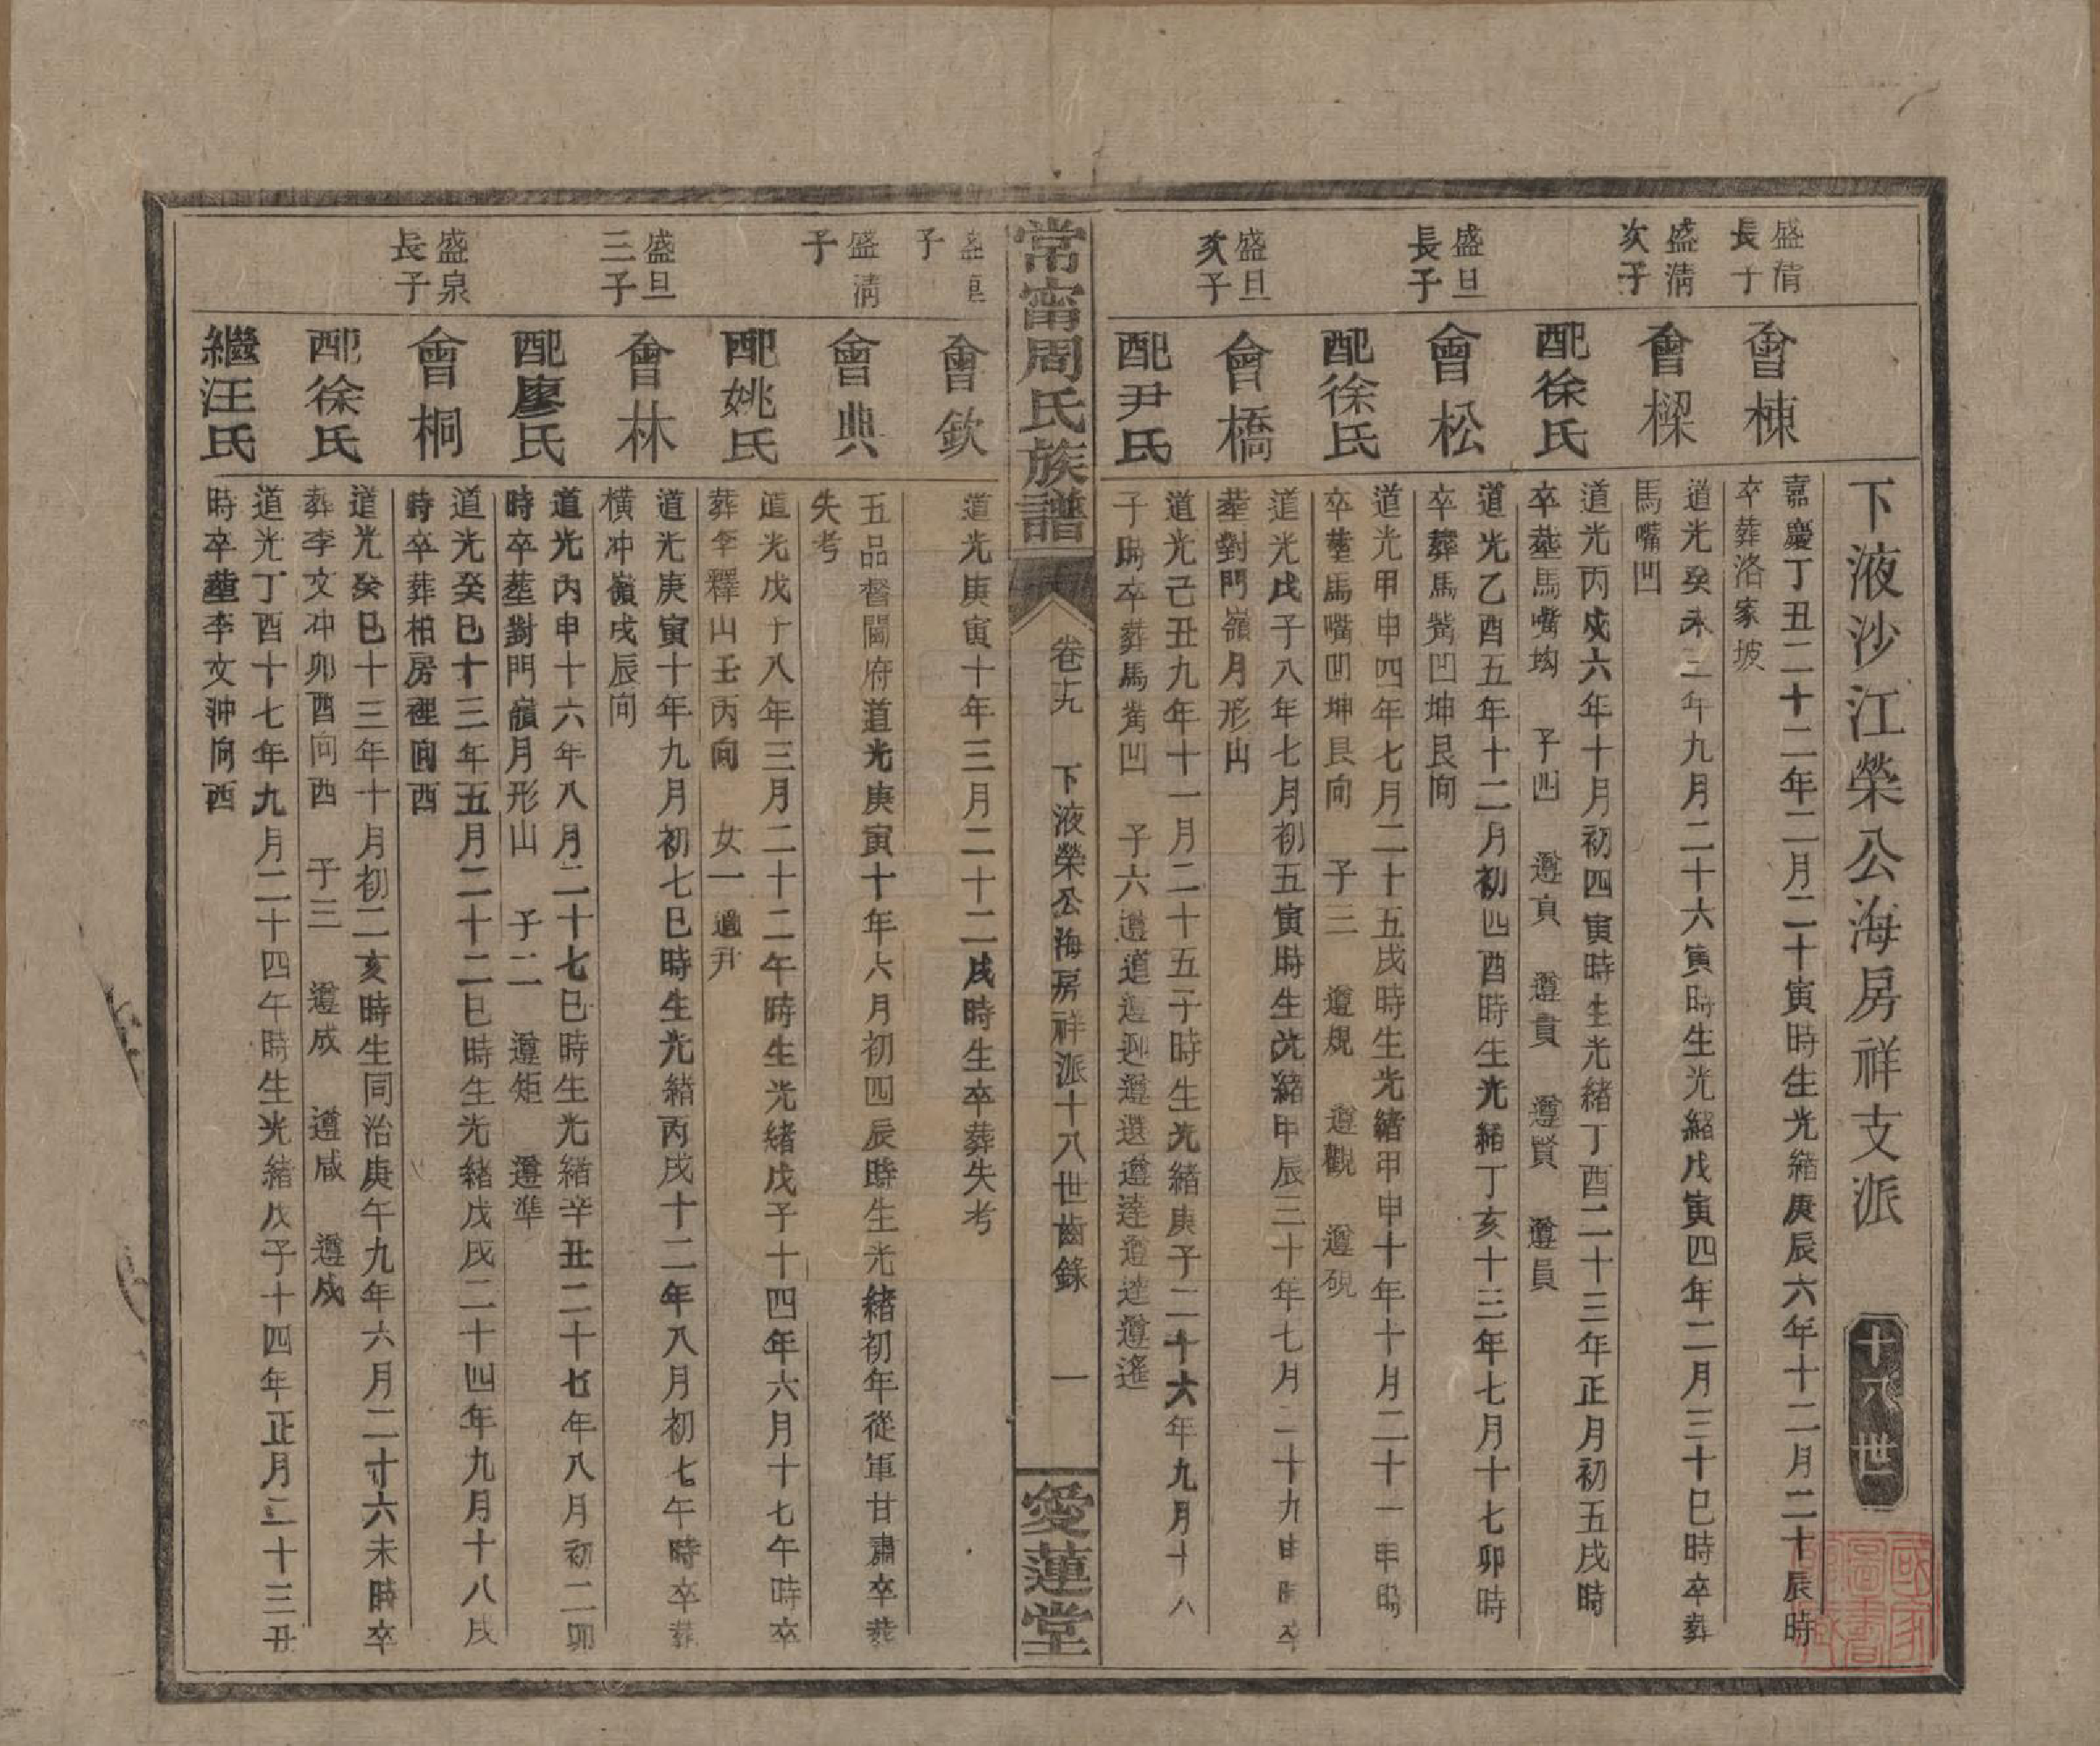 下液沙江榮公海房祥支派 十八世
盛清長子
會棟
嘉慶丁丑二十二年二月二十寅時生光緒庚辰六年十二月二十辰時
卒葬洛家坡
盛清次子
會樑
道光癸未三年九月二十六寅時生光緒戊寅四年二月三十巳時卒葬
馬嘴凹
配徐氏
道光丙戌六年十月初四寅時生光緒丁酉二十三年正月初五戌時
卒塟馬嘴坳 子四 遵貢 遵賢 遵員
盛旦長子
會松
道光乙酉五年十二月初四酉時生光緒丁亥十三年七月十七卯時
卒葬馬嘴凹坤艮向
配徐氏
道光甲申四年七月二十五戌時生光緒甲申十年十月二十一申時
卒塟馬嘴凹坤艮向 子三 遵規 遵觀 遵硯
盛旦次子
會橋
道光戊子八年七月初五寅時生光緒甲辰三十年七月二十九申時卒
塟對門嶺月形山
配尹氏
道光己丑九年十一月二十五子時生光緒庚子二十六年九月十八
子時卒葬馬嘴凹 子六遵道遵迎遵選遵達遵遵遙
常甯周氏族譜 卷十九 下液榮公海房祥派十八世齒錄 一 愛蓮堂
子
會欽
道光庚寅十年三月二十二戌時生卒葬失考
盛清子
會典
五品督閫府道光庚寅十年六月初四辰時生光緒初年從軍甘肅卒葬
失考
配姚氏
道光戊子八年三月二十二午時生光緒戊子十四年六月十七午時卒
葬李釋山壬丙向 女一適升
盛旦三子
會林
道光庚寅十年九月初七巳時生光緒丙戌十二年八月初七午時卒葬
橫冲嶺戌辰向
配廖氏
道光丙申十六年八月二十七巳時生光緒辛丑二十七年八月初二卯
時卒塟對門嶺月形山 子二 遵矩 遵準
盛泉長子
會桐
道光癸巳十三年五月二十二巳時生光緒戊戌二十四年九月十八戌
時卒葬柏房裡向酉
配徐氏
道光癸巳十三年十月初二亥時生同治庚午九年六月二十六未時卒
葬李文冲卯酉向酉 子三 遵成 遵咸 遵戍
繼汪氏
道光丁酉十七年九月二十四午時生光緒戊子十四年正月二十三丑
時卒塟李文沖向酉